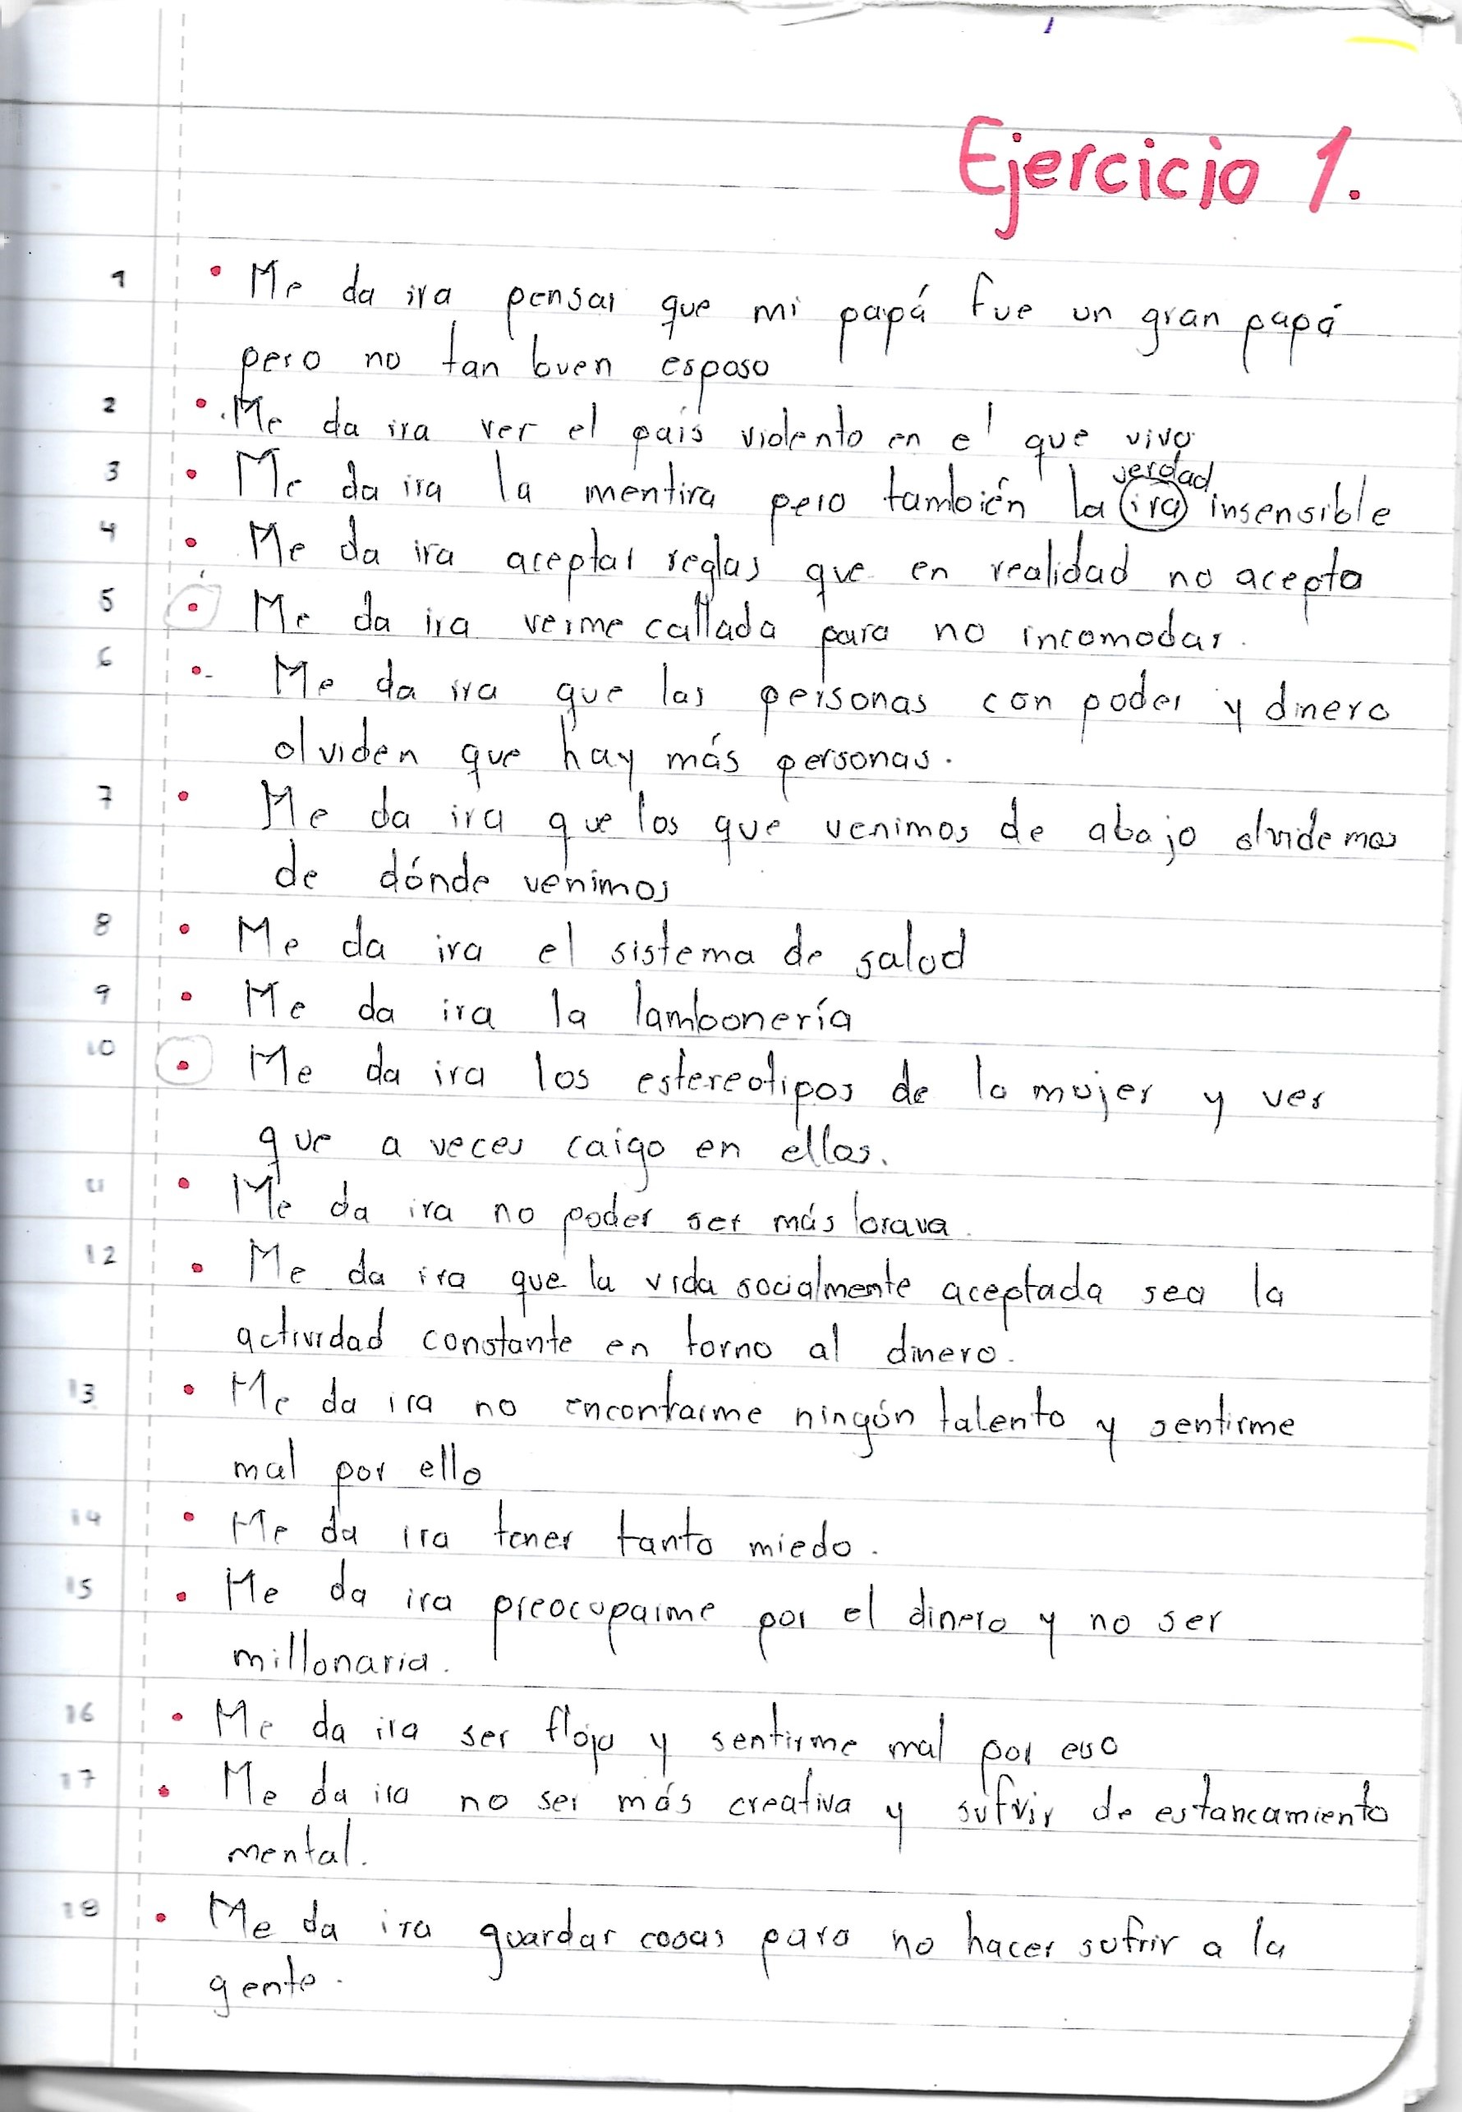 Ejercicio 1.
1 • Me da ira pensar que mi papá fue un gran papá
pero no tan buen esposo
2 • Me da ira ver el país violento en el que vivo
3 • Me da ira la mentira pero también la (ira) verdad insensible
4 • Me da ira aceptar reglas que en realidad no acepto
5 • Me da ira verme callada para no incomodar.
6 • Me da ira que las personas con poder y dinero
olviden que hay más personas.
7 • Me da ira que los que venimos de abajo olvidemos
de dónde venimos
8 • Me da ira el sistema de salud
9 • Me da ira la lambonería
10 • Me da ira los estereotipos de la mujer y ver
que a veces caigo en ellos.
11 • Me da ira no poder ser más brava.
12 • Me da ira que la vida socialmente aceptada sea la
actividad constante en torno al dinero.
13 • Me da ira no encontrarme ningún talento y sentirme
mal por ello
14 • Me da ira tener tanto miedo.
15 • Me da ira preocuparme por el dinero y no ser
millonaria.
16 • Me da ira ser floja y sentirme mal por eso
17 • Me da ira no ser más creativa y sufrir de estancamiento
mental.
18 • Me da ira guardar cosas para no hacer sufrir a la
gente.